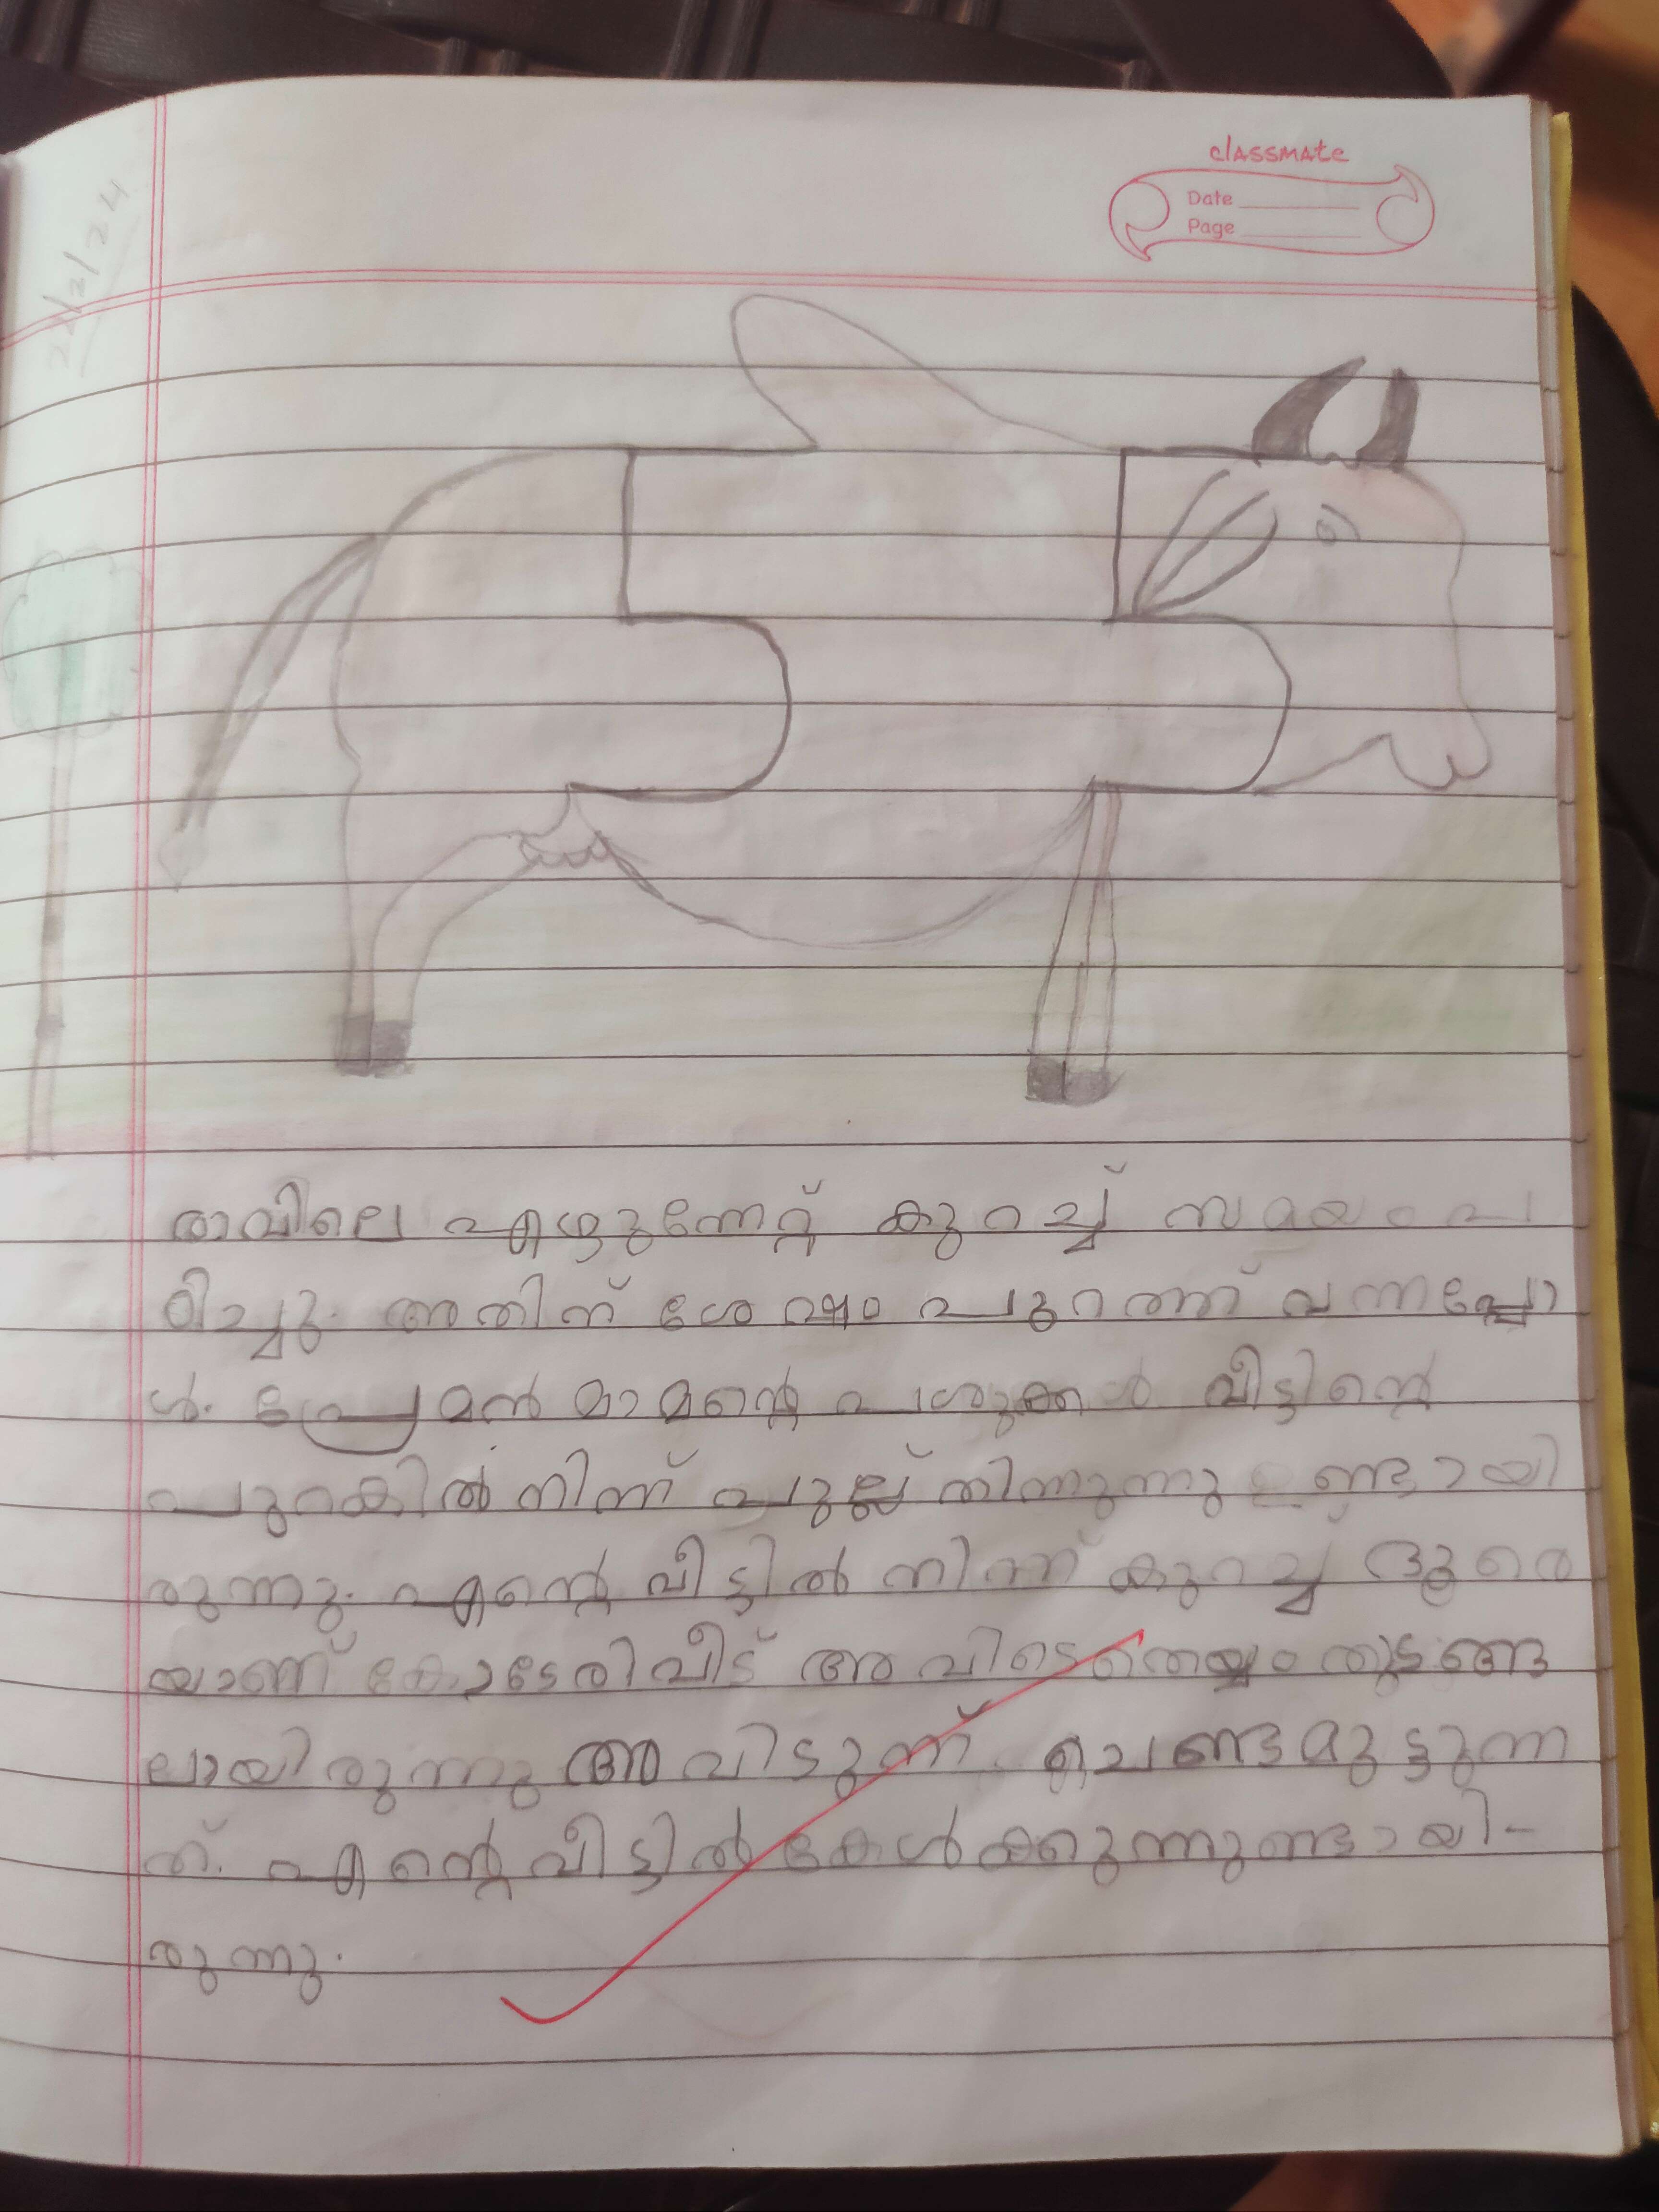 classmate
Date
Page
രാവിലെ എഴുന്നേറ്റ് കുറച്ച് സമയം പ
ഠിച്ചു. അതിന് ശേഷം പുറത്ത് വന്നപ്പോ
ൾ. പ്രേമൻ മാമന്റെ പശുക്കൾ വീട്ടിന്റെ
പുറകിൽ നിന്ന് പുല്ല് തിന്നുന്നു ഉണ്ടായി
രുന്നു. എന്റെ വീട്ടിൽ നിന്ന് കുറച്ച ദൂരെ
യാണ് കോടേരി വീട് അവിടെ തെയ്യം തുടങ്ങ
ലായിരുന്നു അവിടുന്ന് ചെണ്ടമുട്ടുന്ന
ത്. എന്റെ വീട്ടിൽ കേൾക്കുന്നുണ്ടായി-
രുന്നു.